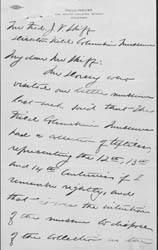 Mr Fred. J. V. Skiff
Director Field Columbian Museum
My dear Mr Skiff:
Mr Dorsey was
visited our little museum
last week said that the
Field Columbian Museum
had a collection of textiles
representing the 12th, 13th
and 14th Centuries if I
remember rightly, and
that it was the intention
of the museum to dispose
of the collection as the